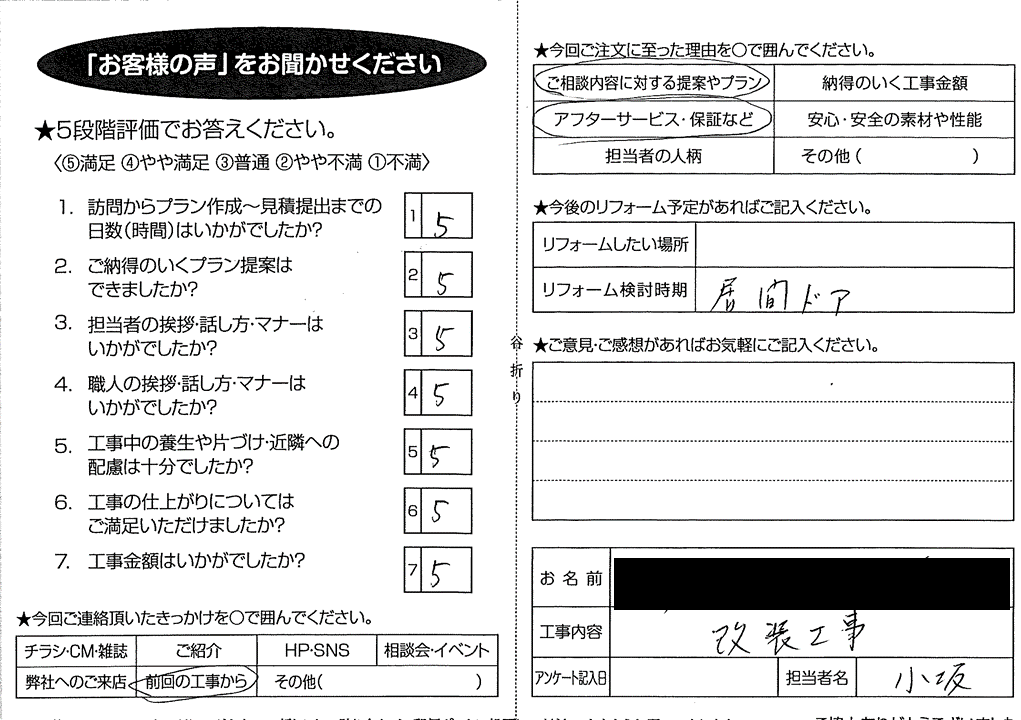 「お客様の声」をお聞かせください
★5段階評価でお答えください。
〈⑤満足 ④やや満足 ③普通 ②やや不満 ①不満〉
1. 訪問からプラン作成〜見積提出までの
日数(時間)はいかがでしたか?
1 5
2. ご納得のいくプラン提案は
できましたか?
2 5
3. 担当者の挨拶・話し方・マナーは
いかがでしたか?
3 5
4. 職人の挨拶・話し方・マナーは
いかがでしたか?
4 5
5. 工事中の養生や片づけ・近隣への
配慮は十分でしたか?
5 5
6. 工事の仕上がりについては
ご満足いただけましたか?
6 5
7. 工事金額はいかがでしたか?
7 5
★今回ご連絡頂いたきっかけを〇で囲んでください。
チラシ・CM・雑誌 ご紹介 HP・SNS 相談会・イベント
弊社へのご来店 前回の工事から その他( )
谷折り
★今回ご注文に至った理由を〇で囲んでください。
ご相談内容に対する提案やプラン 納得のいく工事金額
アフターサービス・保証など 安心・安全の素材や性能
担当者の人柄 その他( )
★今後のリフォーム予定があればご記入ください。
リフォームしたい場所
リフォーム検討時期 居間ドア
★ご意見・ご感想があればお気軽にご記入ください。
お名前
工事内容 改装工事
アンケート記入日 担当者名 小坂